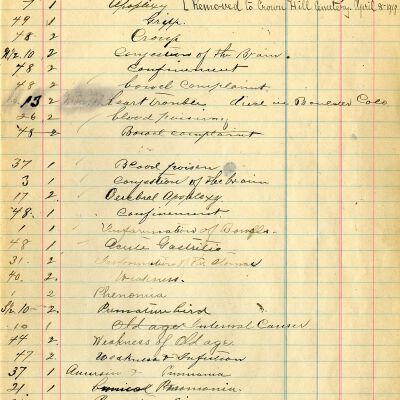 7 1 Apoplexy [Removed to Crown Hill Cemetery April 8-1919
49 1 Gripp.
48 2 Croup
N/2.10 2 Conjestion of the Brain.
48 2 Confinement
48 2 bowel complaint
13 2 heart trouble died in Boulder Colo
26 2 blood poisoning
48 2 Bowel complaint
37 1 Blood poison
3 1 conjestion of the brain
17 2 Cerebral Apoplexy
48. 1 Confinement
1 1 Inflammation of Bowels.
48 1 Acute Gastritis
31. 2
40. 2. Weakness.
1 2 Phenomia
S/2.10 2. Premature bird
10 1 Old age Internal Causes
44 2 Weakness of Old age.
47 2 Weakness &
37 1 &
21 1 Pneumonia.